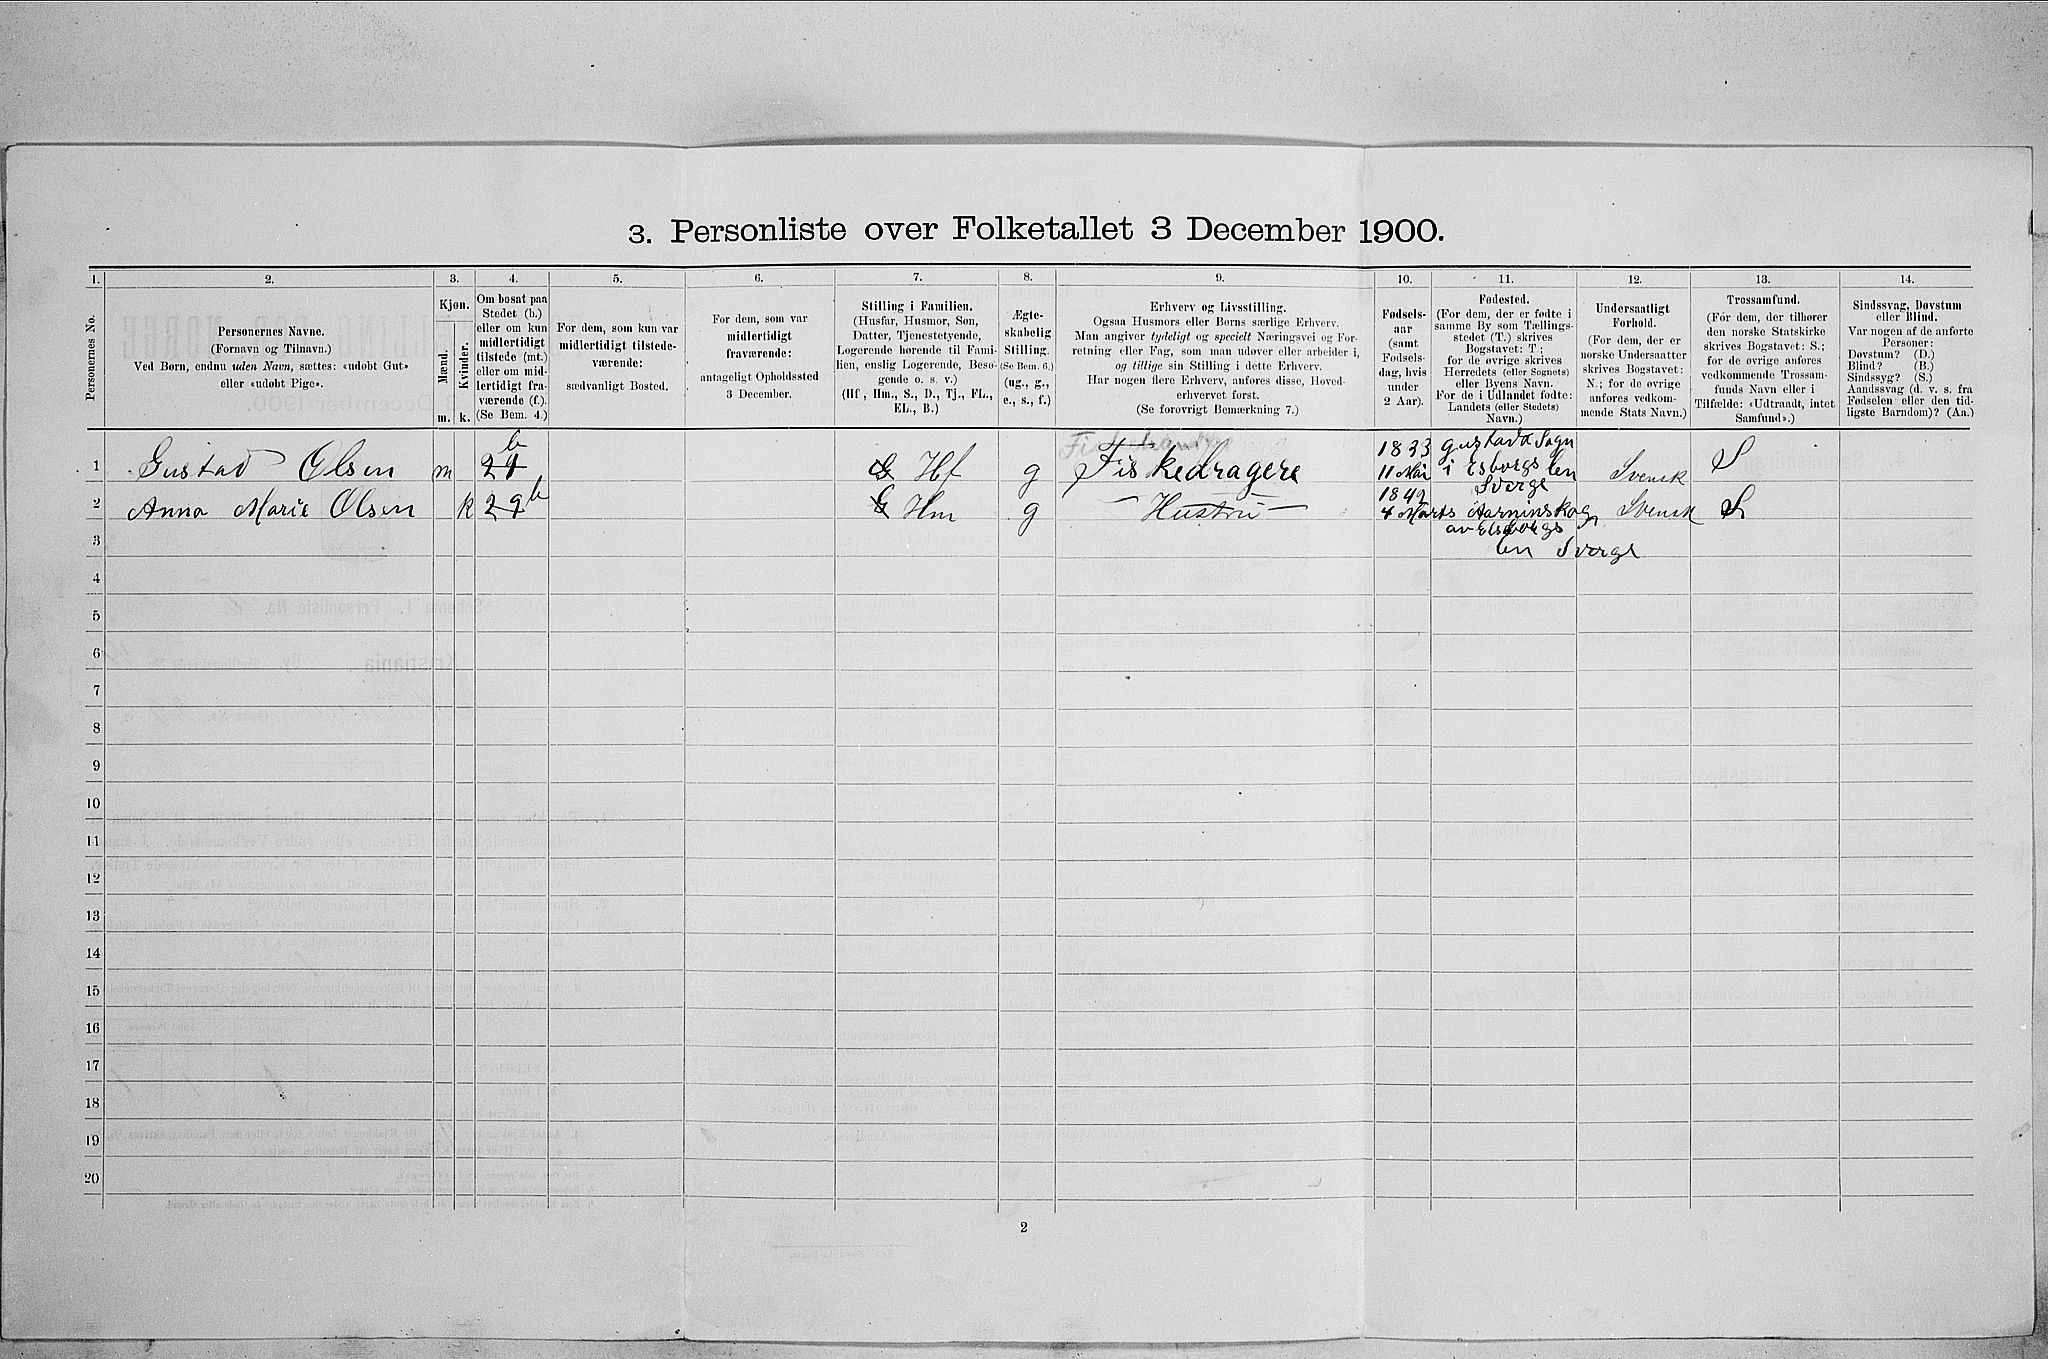 3. Personliste over Folketallet 3 December 1900.
1. 2. 3. 4. 5. 6. 7. 8. 9. 10. 11. 12. 13. 14.
Personernes No.
Personernes Navne.
(Fornavn og Tilnavn.)
Ved Børn, endnu uden Navn, sættes: «udøbt Gut»
eller «udøbt Pige».
Kjøn.
Mænd.
Kvinder.
m. k.
Om bosat paa
Stedet (b.)
eller om kun
midlertidigt
tilstede (mt.)
eller om mid-
lertidigt fra-
værende (f.).
(Se Bem. 4.)
For dem, som kun var
midlertidigt tilstede-
værende:
sædvanligt Bosted.
For dem, som var
midlertidigt
fraværende:
antageligt Opholdssted
3 December.
Stilling i Familien.
(Husfar, Husmor, Søn,
Datter, Tjenestetyende,
Logerende hørende til Fami-
lien, enslig Logerende, Besø-
gende o. s. v.)
(Hf., Hm., S., D., Tj., FL.,
EL., B.)
Ægte-
skabelig
Stilling.
(Se Bem. 6.)
(ug., g.,
e., s., f.)
Erhverv og Livsstilling.
Ogsaa Husmors eller Børns særlige Erhverv.
Man angiver tydeligt og specielt Næringsvei og For-
retning eller Fag, som man udøver eller arbeider i,
og tillige sin Stilling i dette Erhverv.
Har nogen flere Erhverv, anføres disse, Hoved-
erhvervet først.
(Se forøvrigt Bemærkning 7.)
Fødsels-
aar
(samt
Fødsels-
dag, hvis
under
2 Aar).
Fødested.
(For dem, der er fødte i
samme By som Tællings-
stedet (T.) skrives
Bogstavet: T;
for de øvrige skrives
Herredets (eller Sognets)
eller Byens Navn.
For de i Udlandet fødte:
Landets (eller Stedets)
Navn.)
Undersaatligt
Forhold.
(For dem, der er
norske Undersaatter
skrives Bogstavet:
N.; for de øvrige
anføres vedkom-
mende Stats Navn.)
Trossamfund.
(For dem, der tilhører
den norske Statskirke
skrives Bogstavet: S.;
for de øvrige anføres
vedkommende Trossam-
funds Navn eller i
Tilfælde: «Udtraadt, intet
Samfund».)
Sindssvag, Døvstum
eller Blind.
Var nogen af de anførte
Personer:
Døvstum? (D.)
Blind? (B.)
Sindssyg? (S.)
Aandssvag (d. v. s. fra
Fødselen eller den tid-
ligste Barndom)? (Aa.)
1 Gustad Olsen m b Hf g Fiskedragere 1833 11 Mai Gustada Sogn
i Esborgs len
Sverge Svensk S
2 Anna Marie Olsen k b Hm g – Hustru – 1842 4 Marts
av Elsborgs
len Sverge Svensk S
3
4
5
6
7
8
9
10
11
12
13
14
15
16
17
18
19
20
2